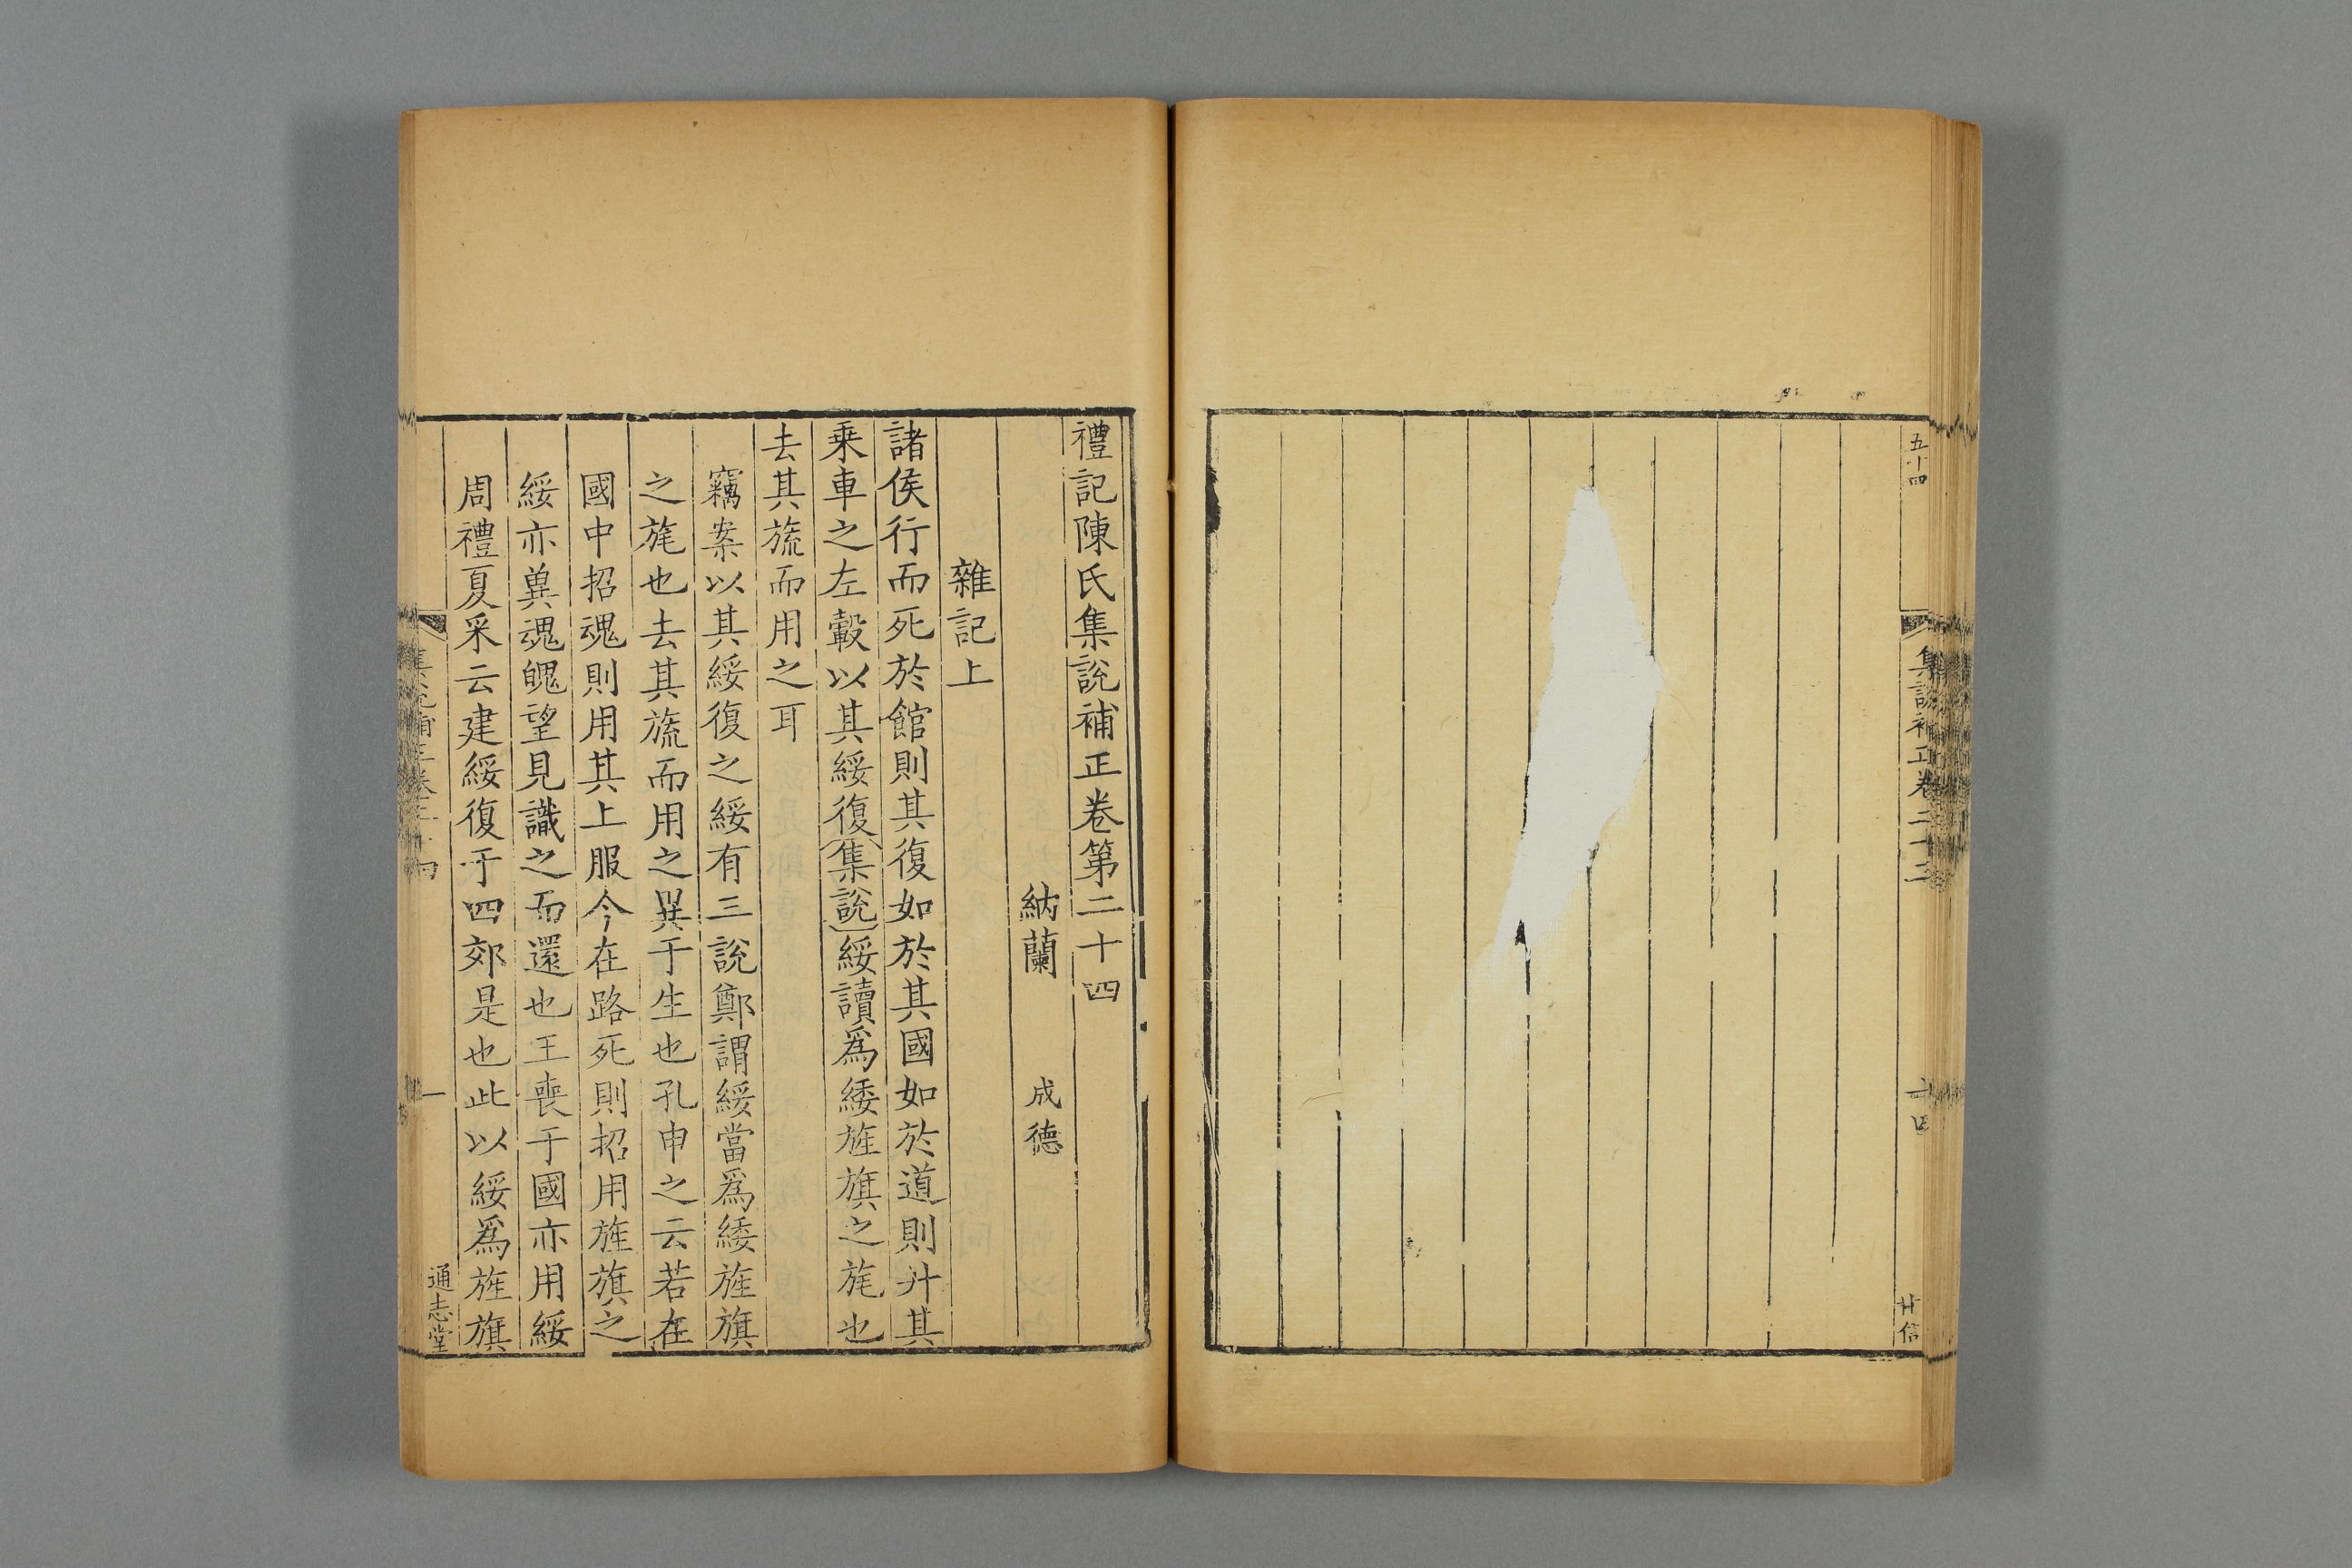 五十四
集說補正卷二十三
十四
廿信
禮記陳氏集說補正卷第二十四
納蘭 成德
雜記上
諸侯行而死於館則其復如於其國如於道則廾其
乗車之左轂以其綏復集說綏讀爲緌旌旗之旄也
去其旒而用之耳
竊案以其綏復之綏有三說鄭謂綏當爲緌旌旗
之旄也去其旒而用之異于生也孔申之云若在
國中招魂則用其上服今在路死則招用旌旗之
綏亦兾魂魄望見識之而還也王喪于國亦用綏
周禮夏采云建綏復于四郊是也此以綏爲旌旗
集說補正卷二十四
一
通志堂